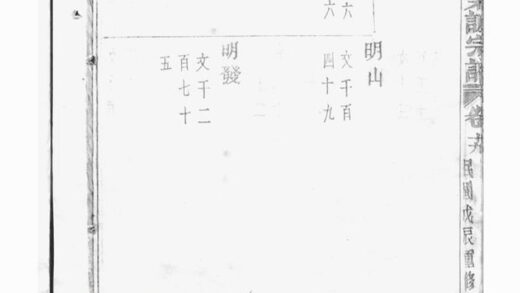 宗譜
民國戊辰重修
六
六
明山
文千百
四十九
明發
文千二
百七十
五